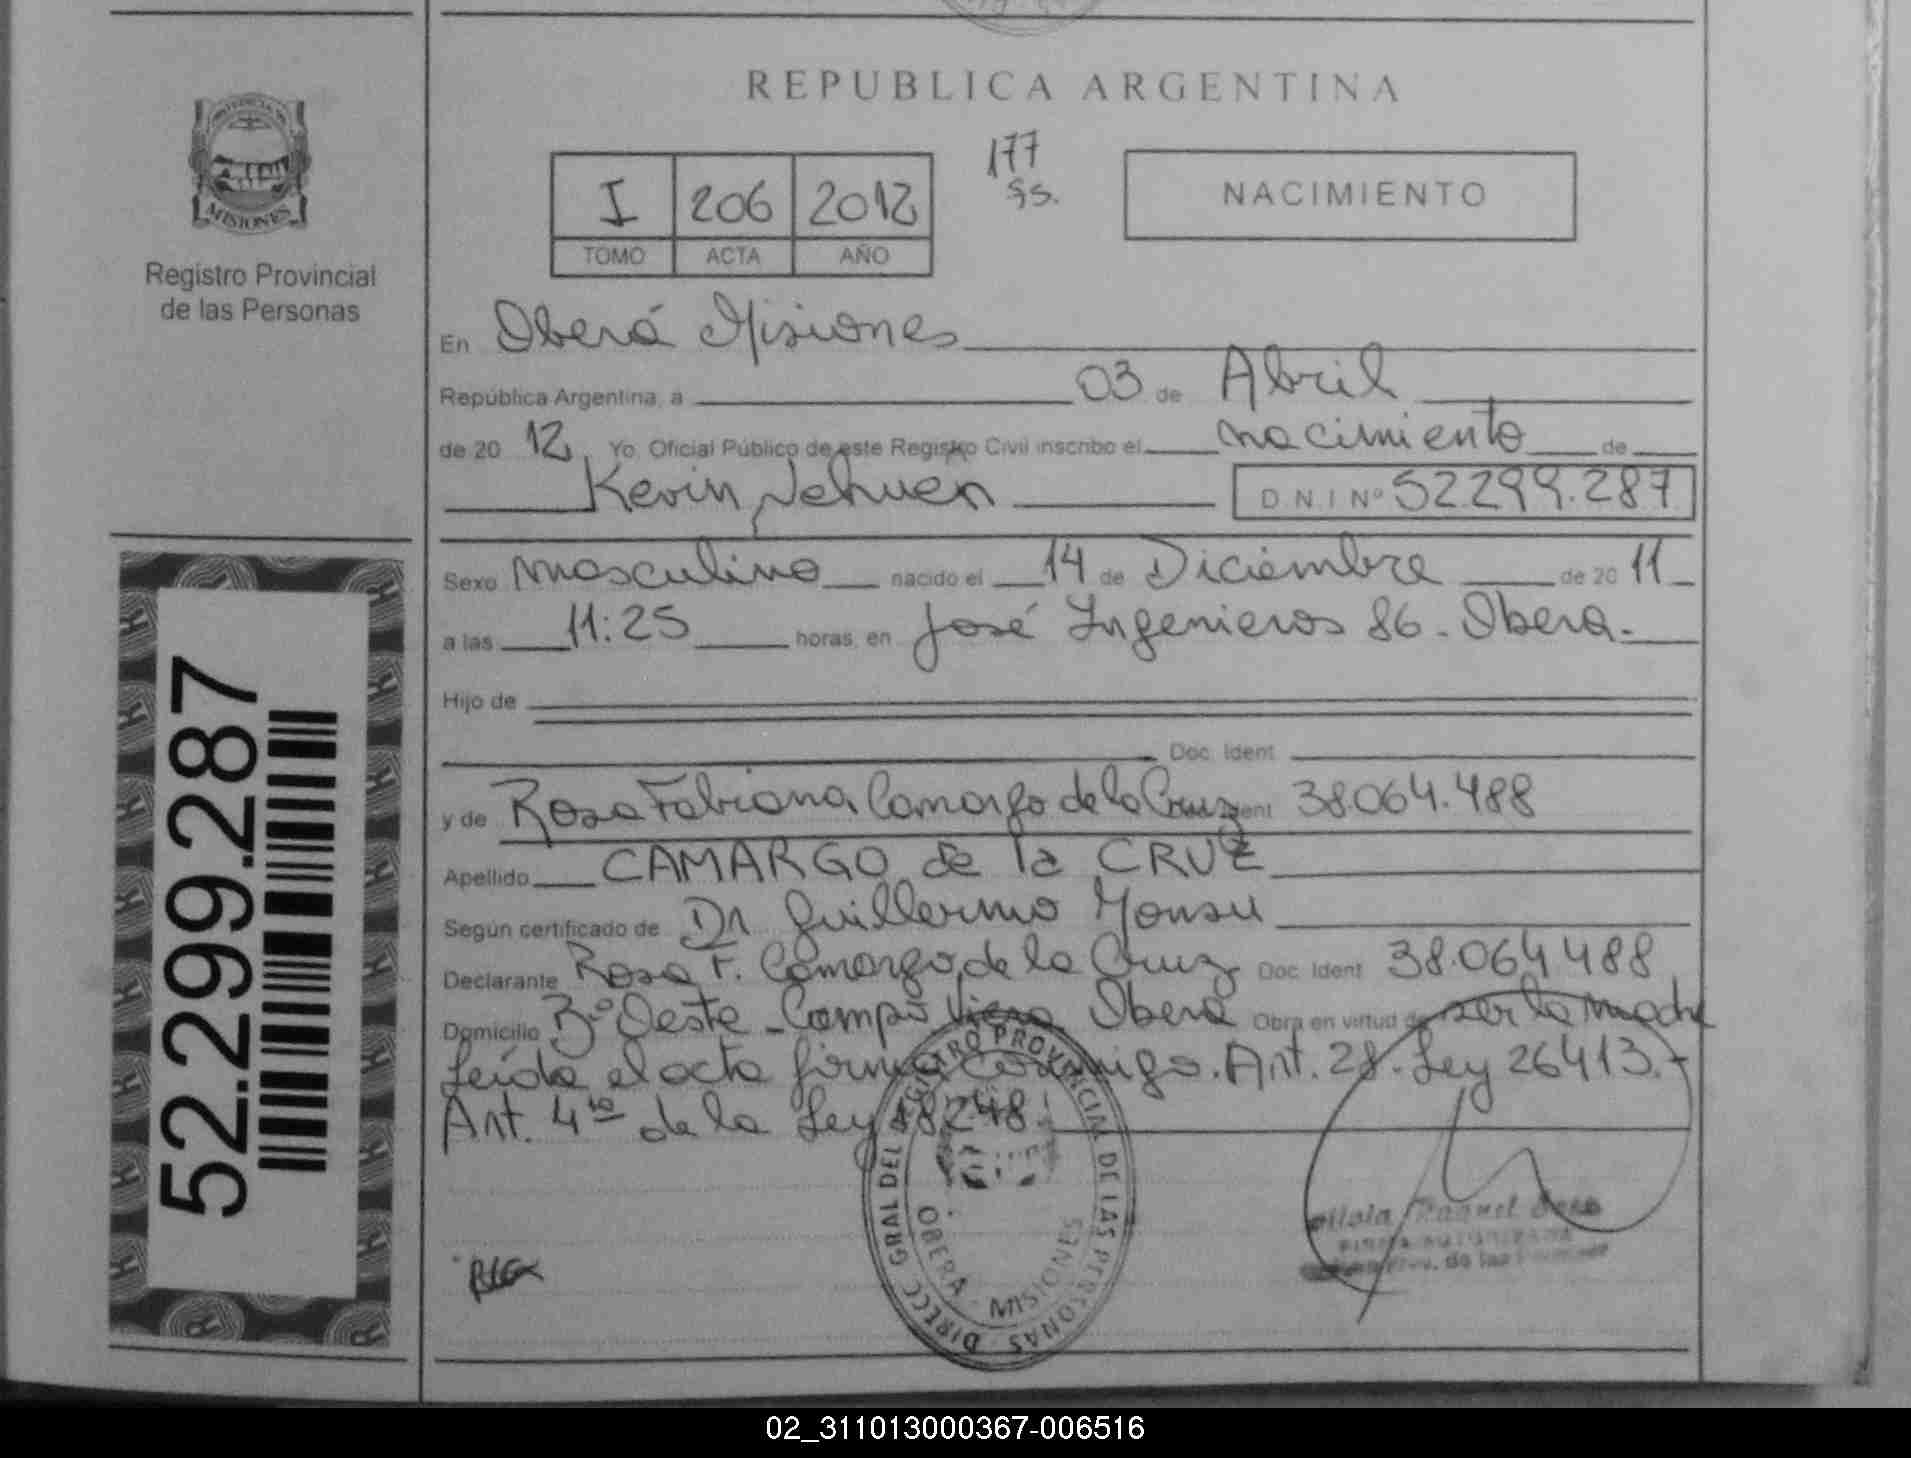 REPUBLICA ARGENTINA
MISIONES
Registro Provincial
de las Personas
177
I 206 2012
TOMO ACTA AÑO
NACIMIENTO
En Oberá Misiones
República Argentina, a 03 de Abril
de 20 12, Yo, Oficial Público de este Registro Civil inscribo el nacimiento de
Kevin Nehuen D.N.I Nº 52.299.287
Sexo masculino nacido el 14 de Diciembre de 20 11
a las 11:25 horas, en José Ingenieros 86. Obera.
Hijo de
Doc. Ident.
y de Rosa Fabiana Camargo de la Cruz ent 38.064.488
Apellido CAMARGO de la CRUZ
Según certificado de Dr Guillermo
Declarante Rosa F. Camargo de la Cruz Doc. Ident 38.064 488
Domicilio Bº Oeste - Campo Viera Obera Obra en virtud de ser la madre
Leída el acta firma conmigo. Art. 28. Ley 26413.-
Art. 4to de la Ley 18248.
52.299.287
DIRECC GRAL DEL REGISTRO PROVINCIAL DE LAS PERSONAS
OBERA - MISIONES
Raquel
02_311013000367-006516